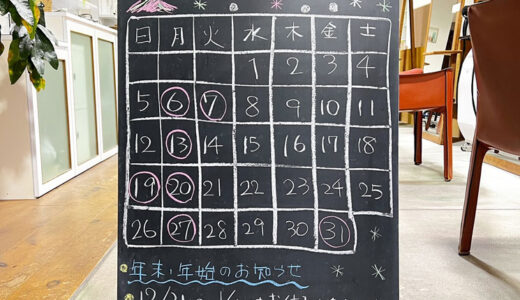 日 月 火 水 木 金 土
1 2 3 4
5 6 7 8 9 10 11
12 13 14 15 16 17 18
19 20 21 22 23 24 25
26 27 28 29 30 31
年末・年始のお知らせ